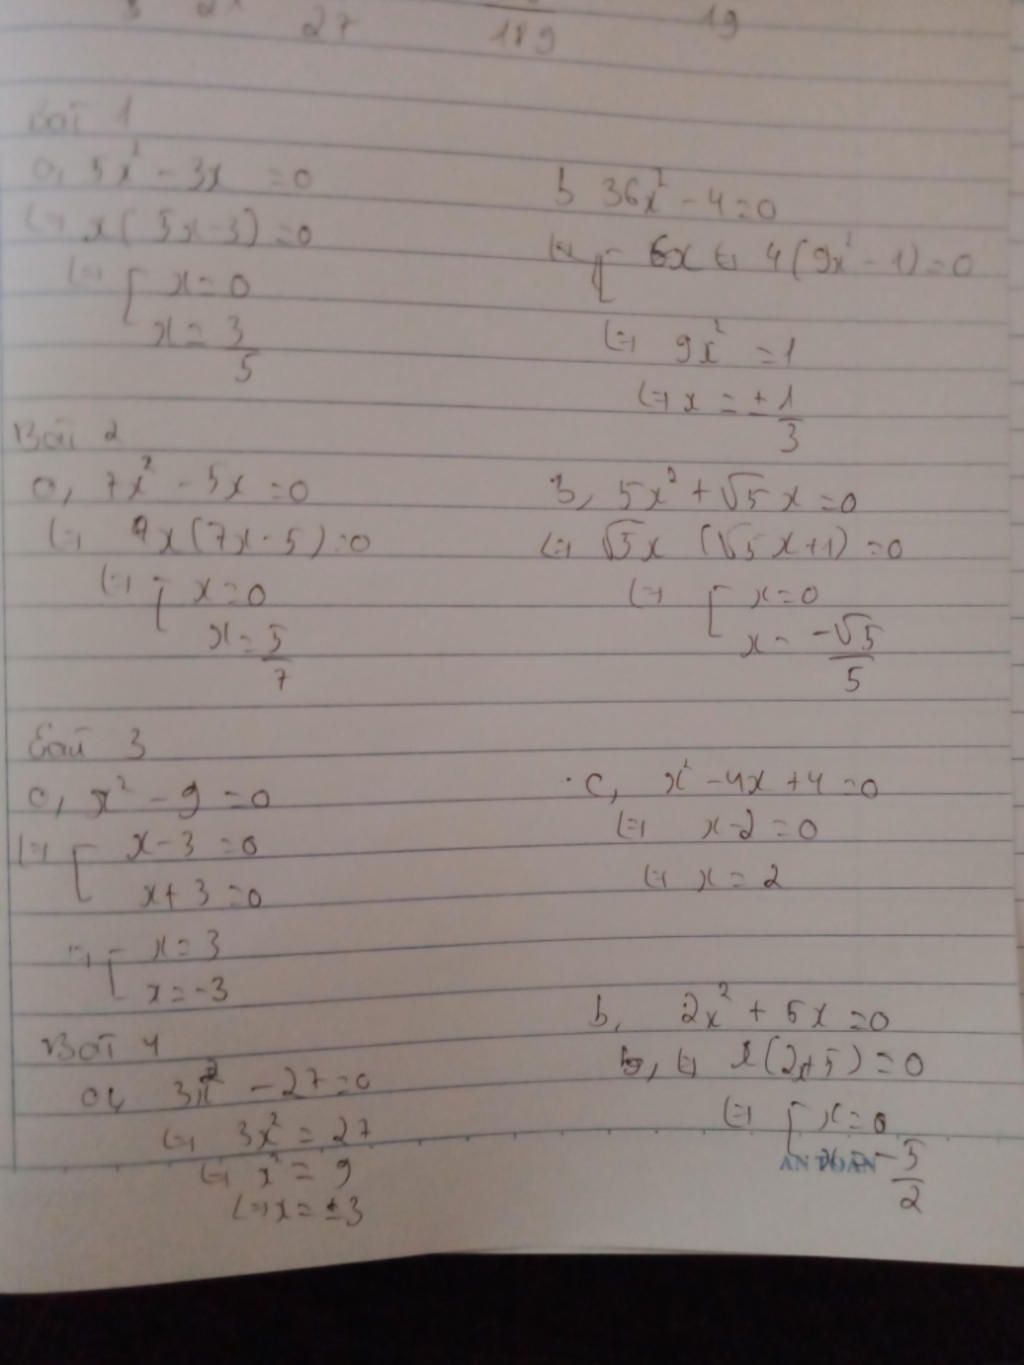 27 189 19
Bài 1
a, 5x² - 3x = 0
(=) x(5x-3) = 0
(=) [ x = 0
x = 3/5
b 36x² - 4 = 0
(=) [ 6x (=) 4(9x² - 1) = 0
(=) 9x² = 1
(=) x = ± 1/3
Bài 2
a, 7x² - 5x = 0
(=) x(7x - 5) = 0
(=) [ x = 0
x = 5/7
b, 5x² + √5 x = 0
(=) √5x (√5 x + 1) = 0
(=) [ x = 0
x = -√5/5
Bài 3
a, x² - 9 = 0
(=) [ x - 3 = 0
x + 3 = 0
(=) [ x = 3
x = -3
c, x² - 4x + 4 = 0
(=) x - 2 = 0
(=) x = 2
Bài 4
a, 3x² - 27 = 0
(=) 3x² = 27
(=) x² = 9
(=) x = ±3
b, 2x² + 5x = 0
(=) x(2x+5) = 0
(=) [ x = 0
x = -5/2